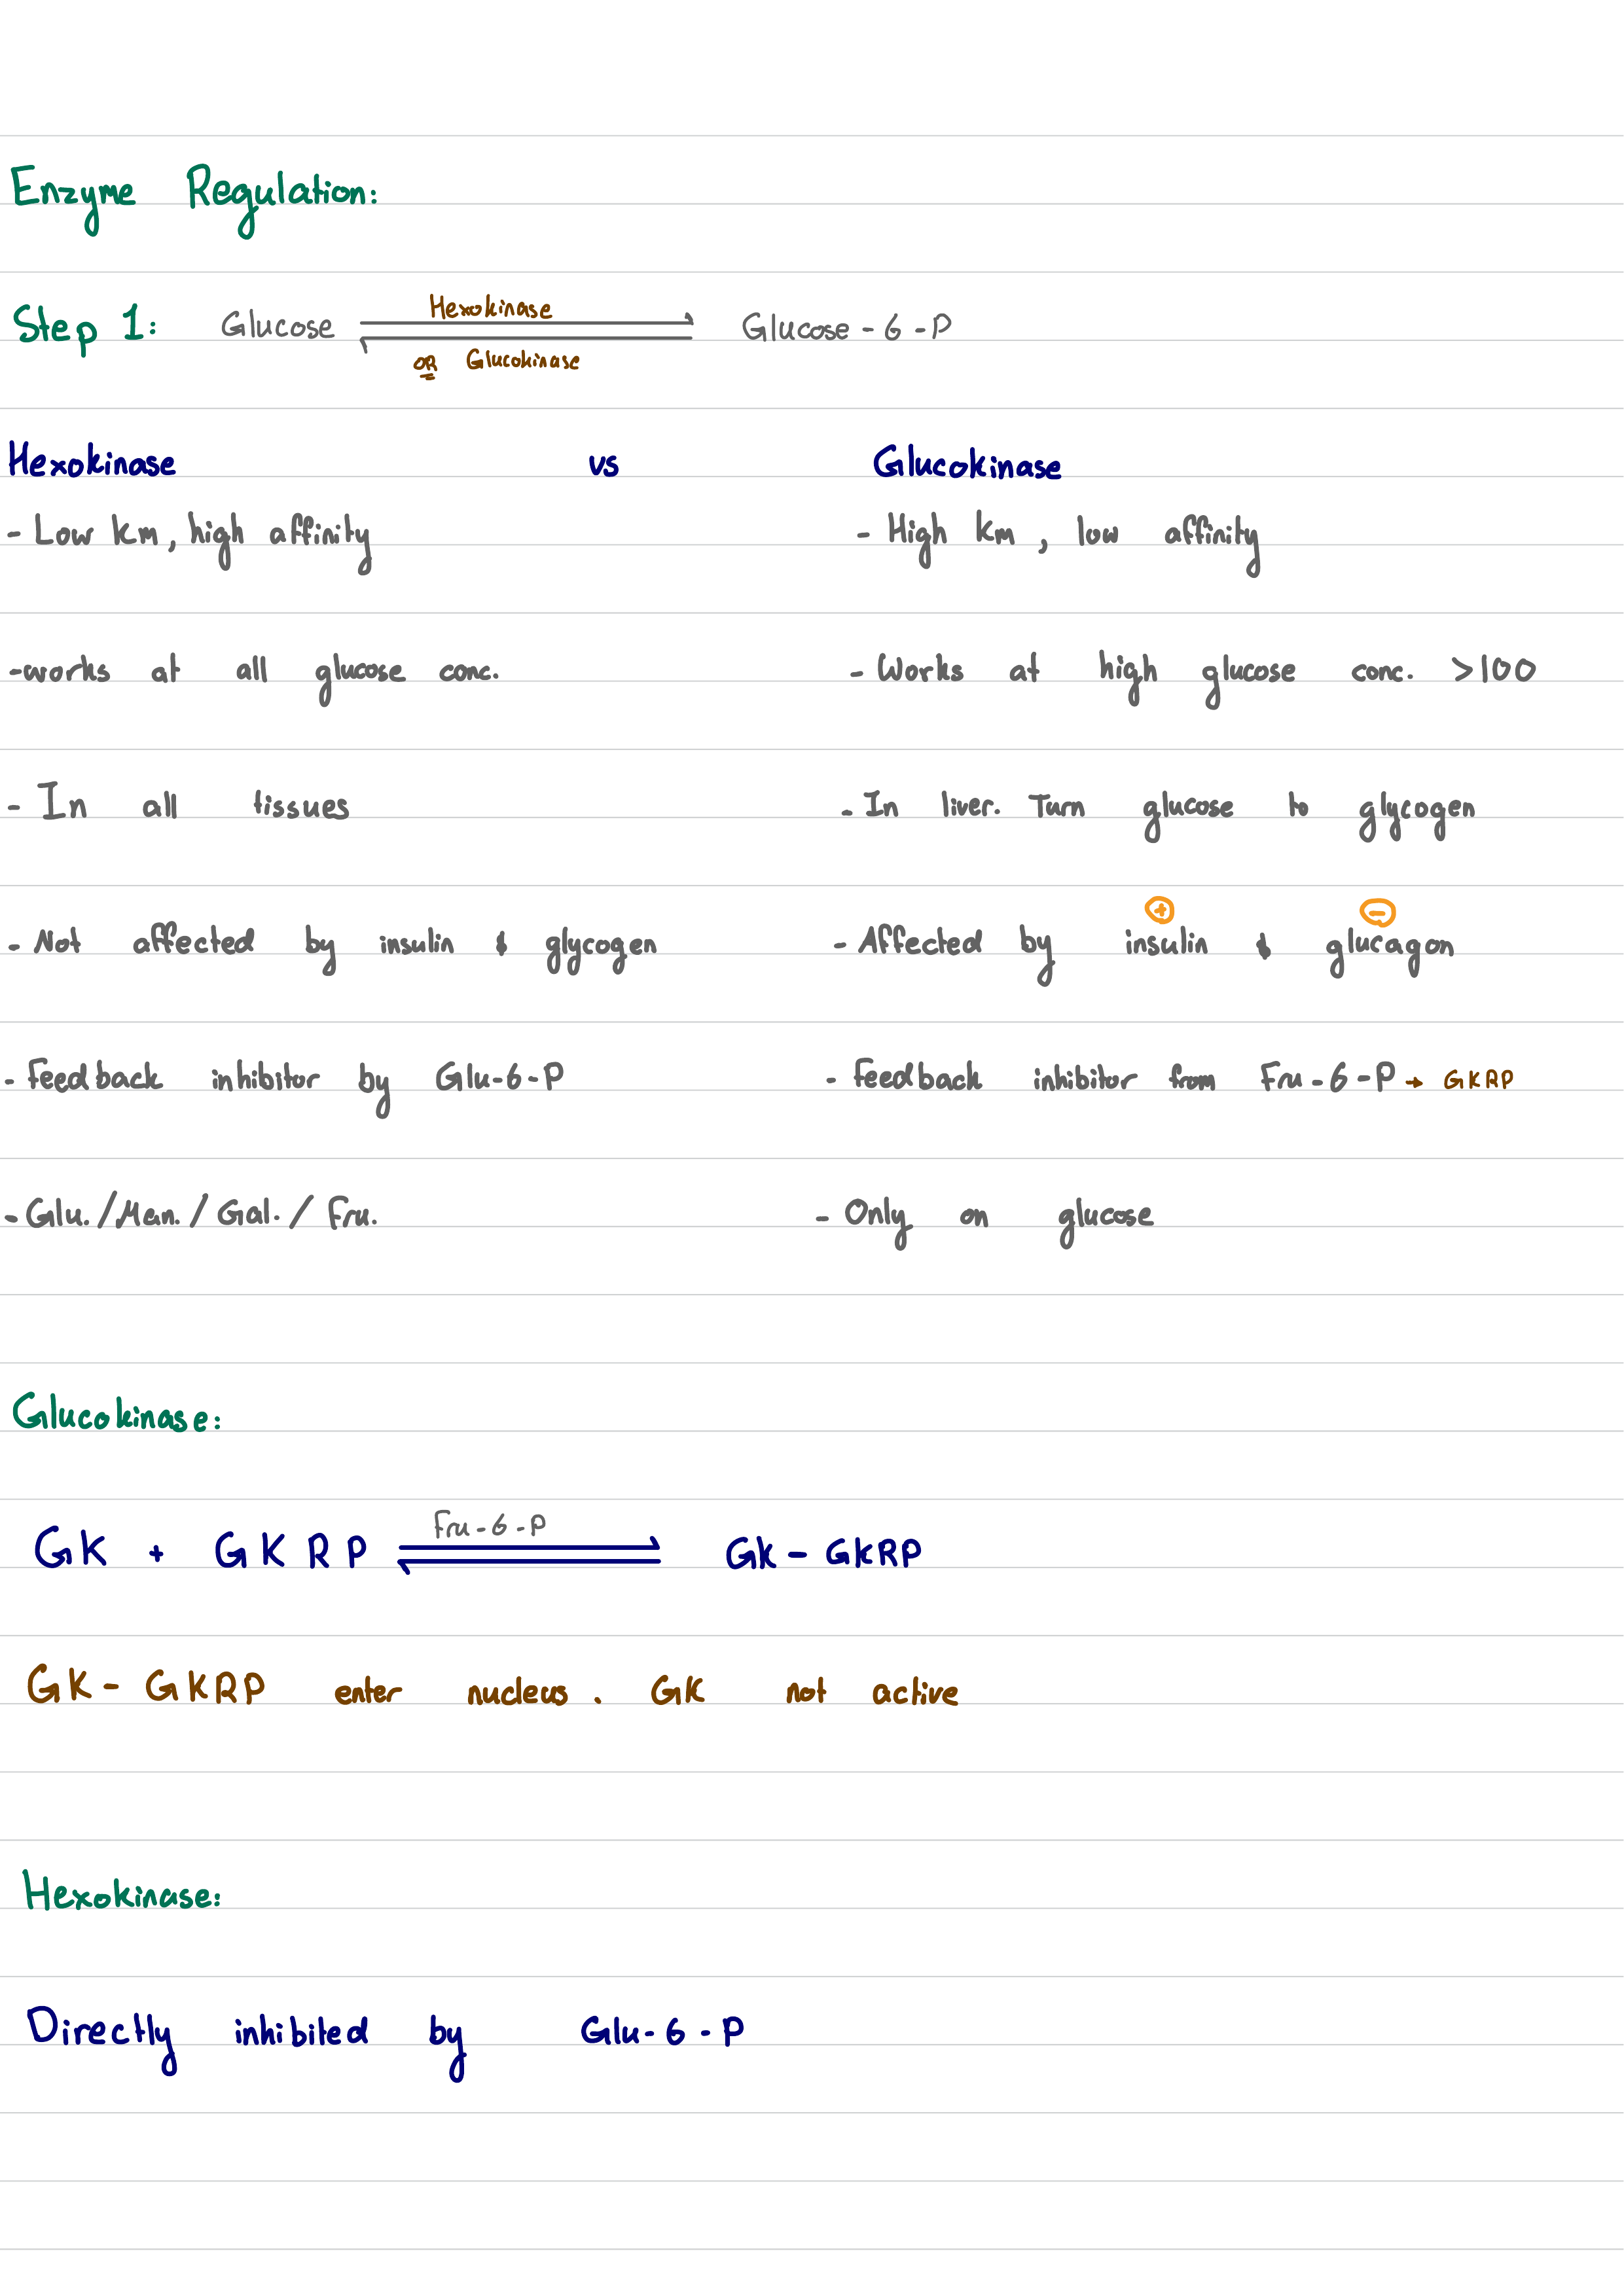 Enzyme Regulation:
Hexokinase
Step 1: Glucose ⇌ Glucose - 6 - P
OR Glucokinase
Hexokinase vs Glucokinase
- Low Km, high affinity - High Km, low affinity
- works at all glucose conc. - Works at high glucose conc. >100
- In all tissues - In liver. Turn glucose to glycogen
+ -
- Not affected by insulin & glycogen - Affected by insulin & glucagon
- Feedback inhibitor by Glu-6-P - Feedback inhibitor from Fru-6-P → GKRP
- Glu. / Man. / Gal. / Fru. - Only on glucose
Glucokinase:
Fru-6-P
GK + GKRP ⇌ GK - GKRP
GK - GKRP enter nucleus. GK not active
Hexokinase:
Directly inhibited by Glu-6-P